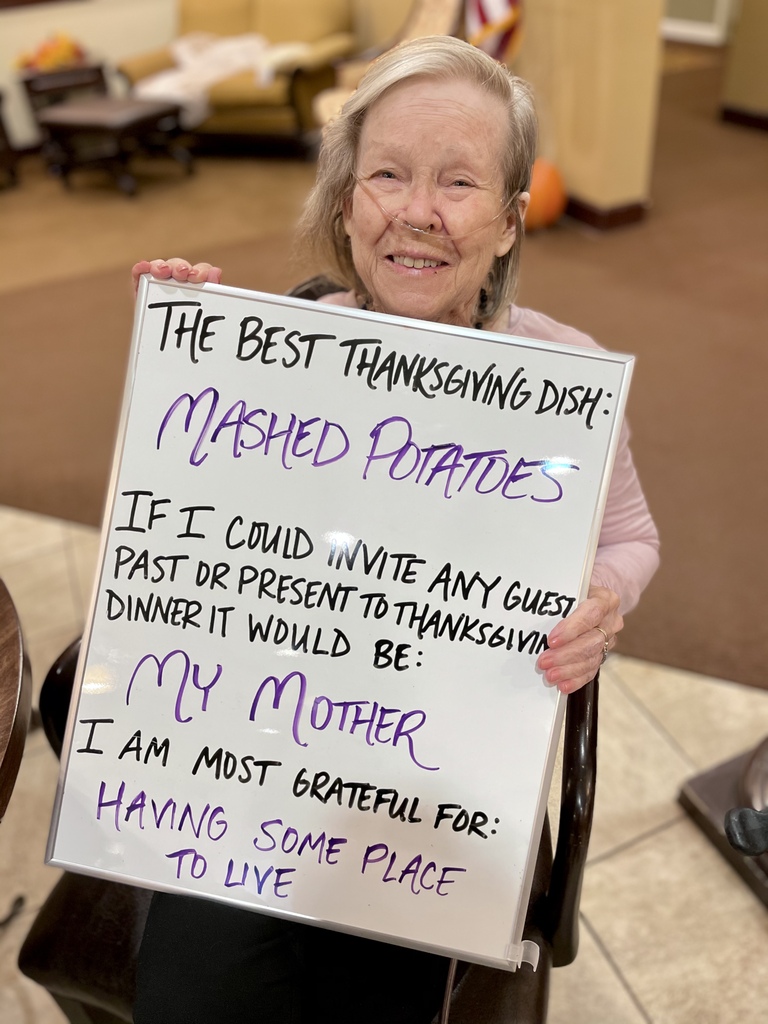 THE BEST THANKSGIVING DISH:
MASHED POTATOES
IF I COULD INVITE ANY GUEST
PAST OR PRESENT TO THANKSGIVIN
DINNER IT WOULD BE:
MY MOTHER
I AM MOST GRATEFUL FOR:
HAVING SOME PLACE
TO LIVE